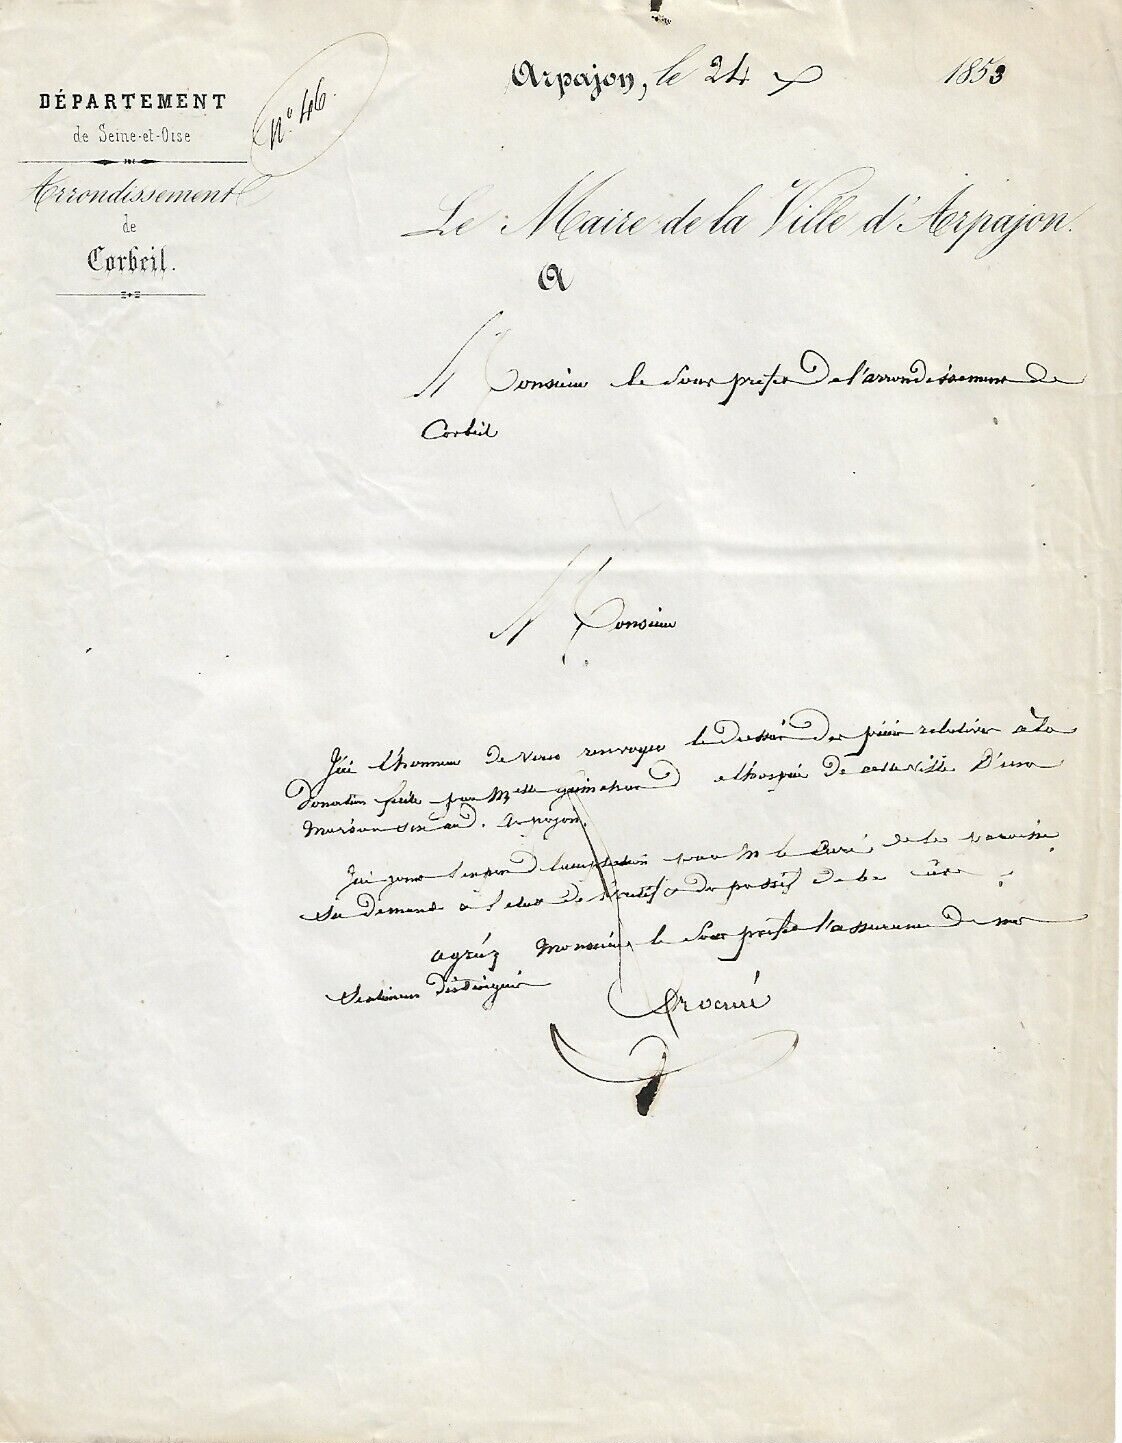 DÉPARTEMENT
de Seine-et-Oise
Arrondissement
de
Corbeil.
N° 46.
Arpajon, le 24 1853
Le Maire de la Ville d'Arpajon.
A
Monsieur le Sous préfet de l'arrondissement de
Corbeil
Monsieur
J'ai l'honneur de vous renvoyer le dossier des pièces relatives à la
Donation faite par Melle a l'hospice de cette ville d'une
maison sise au d. Arpajon.
J'ai joint l'acceptation par M le Curé de la paroisse
Sa demande à l'état de l'actif & du passif de la cure
agréez Monsieur le Sous préfet l'assurance de mes
Sentimens distingués